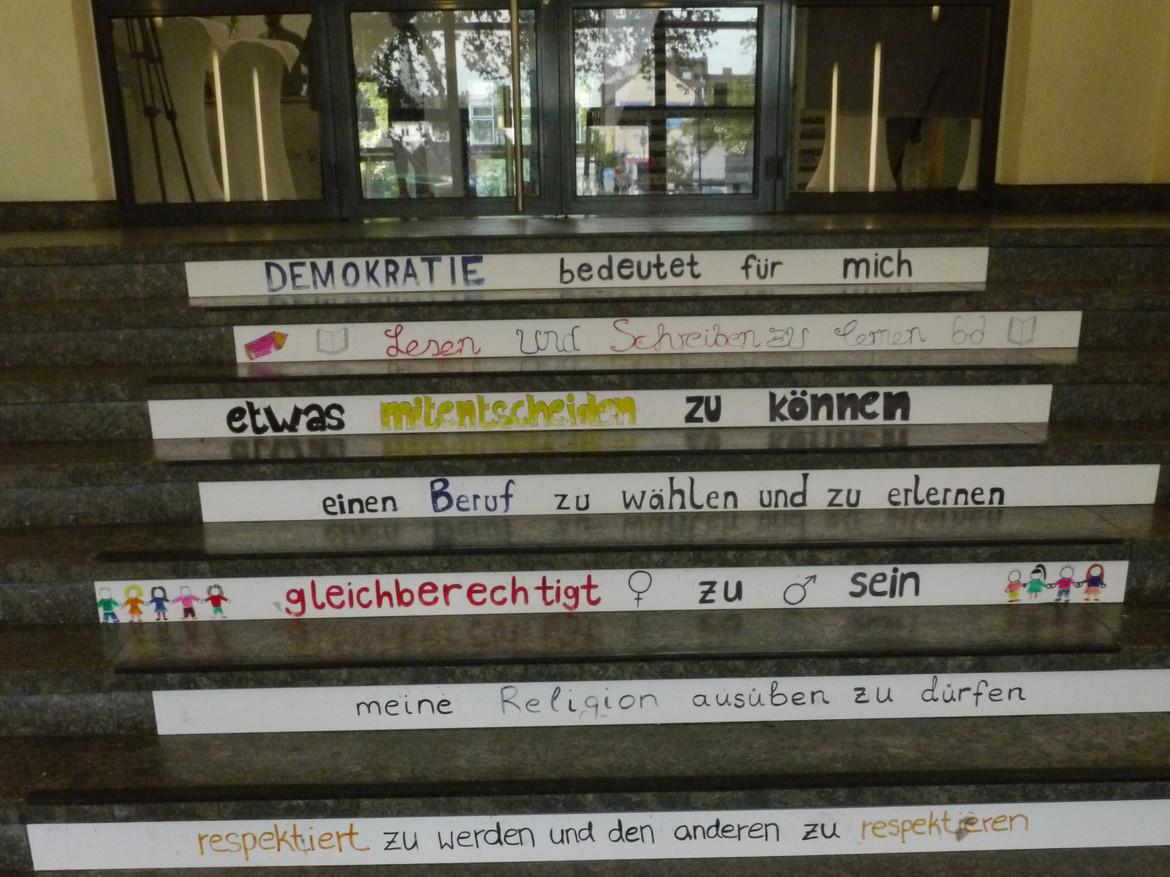 DEMOKRATIE bedeutet für mich
Lesen und Schreiben zu lernen
etwas mitentscheiden zu können
einen Beruf zu wählen und zu erlernen
gleichberechtigt ♀ zu ♂ sein
meine Religion ausüben zu dürfen
respektiert zu werden und den anderen zu respektieren